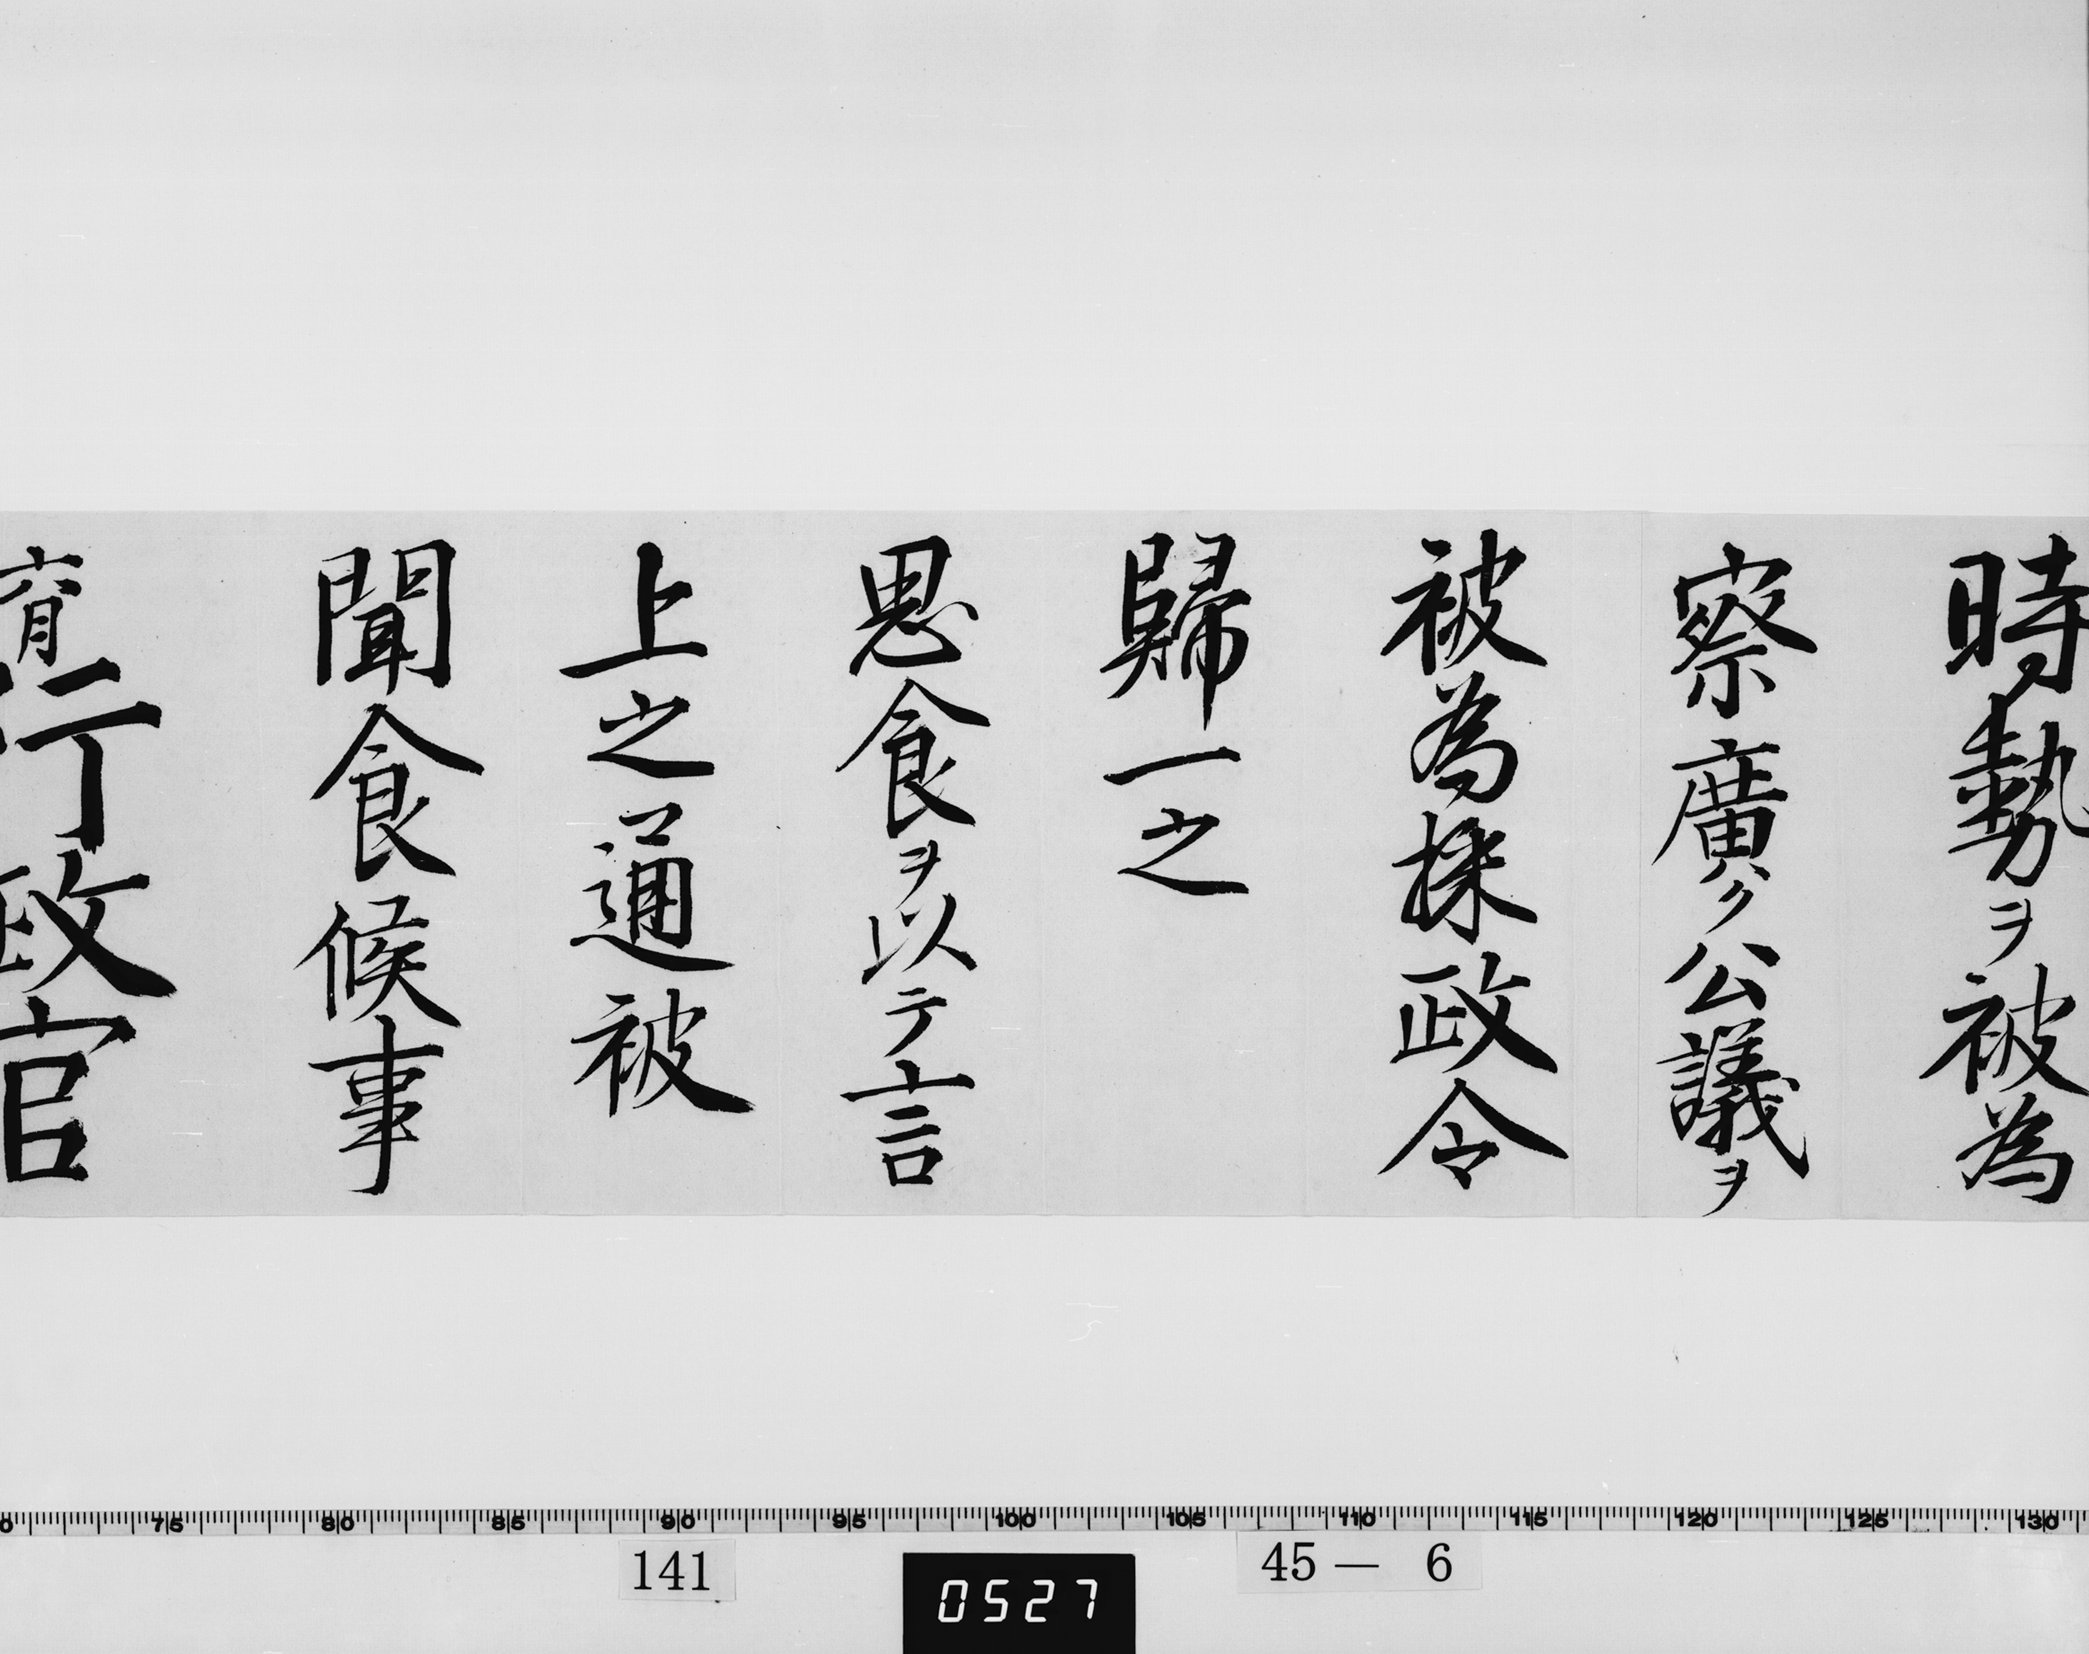 時勢ヲ被為
察廣ク公議ヲ
被為採政令
歸一之
思食ヲ以テ言
上之通被
聞食候事
行政官
75 80 85 90 95 100 105 110 115 120 125 130
141
0527
45— 6